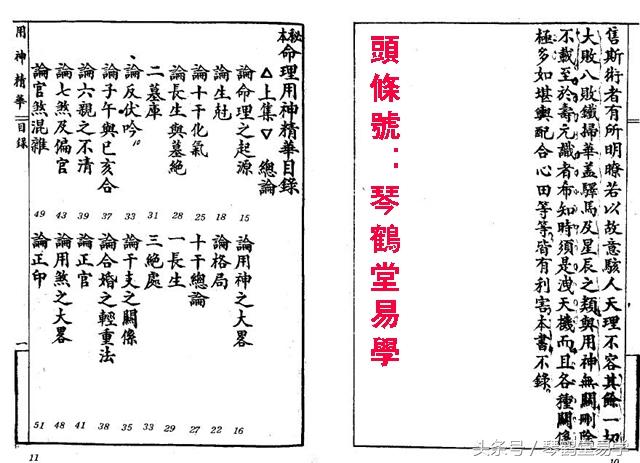 售斯術者有所明瞭若以故意駭人天理不容其餘一切
大敗八敗鐵掃華盖驛馬及星辰之類與用神無關刪除
不載至於壽元識者布知時須是洩天機而且各種關係
極多如堪輿配合心田等等皆有利害本書不錄
10
頭條號：琴鶴堂易學
秘本命理用神精華目錄
△上集▽ 總論
論命理之起源 15
論用神之大畧 16
論生尅 18
論格局 22
論十干化氣 25
十干總論 27
論長生與墓絶 28
一長生 29
二墓庫 31
三絶處 33
論反伏吟 33
論干支之關係 35
論子午與巳亥合 37
論合婚之輕重法 38
論六親之不清 39
論正官 41
論七煞及偏官 43
論用煞之大畧 48
論官煞混雜 49
論正印 51
用神精華 目錄
一
11
头条号／琴鹤堂易学